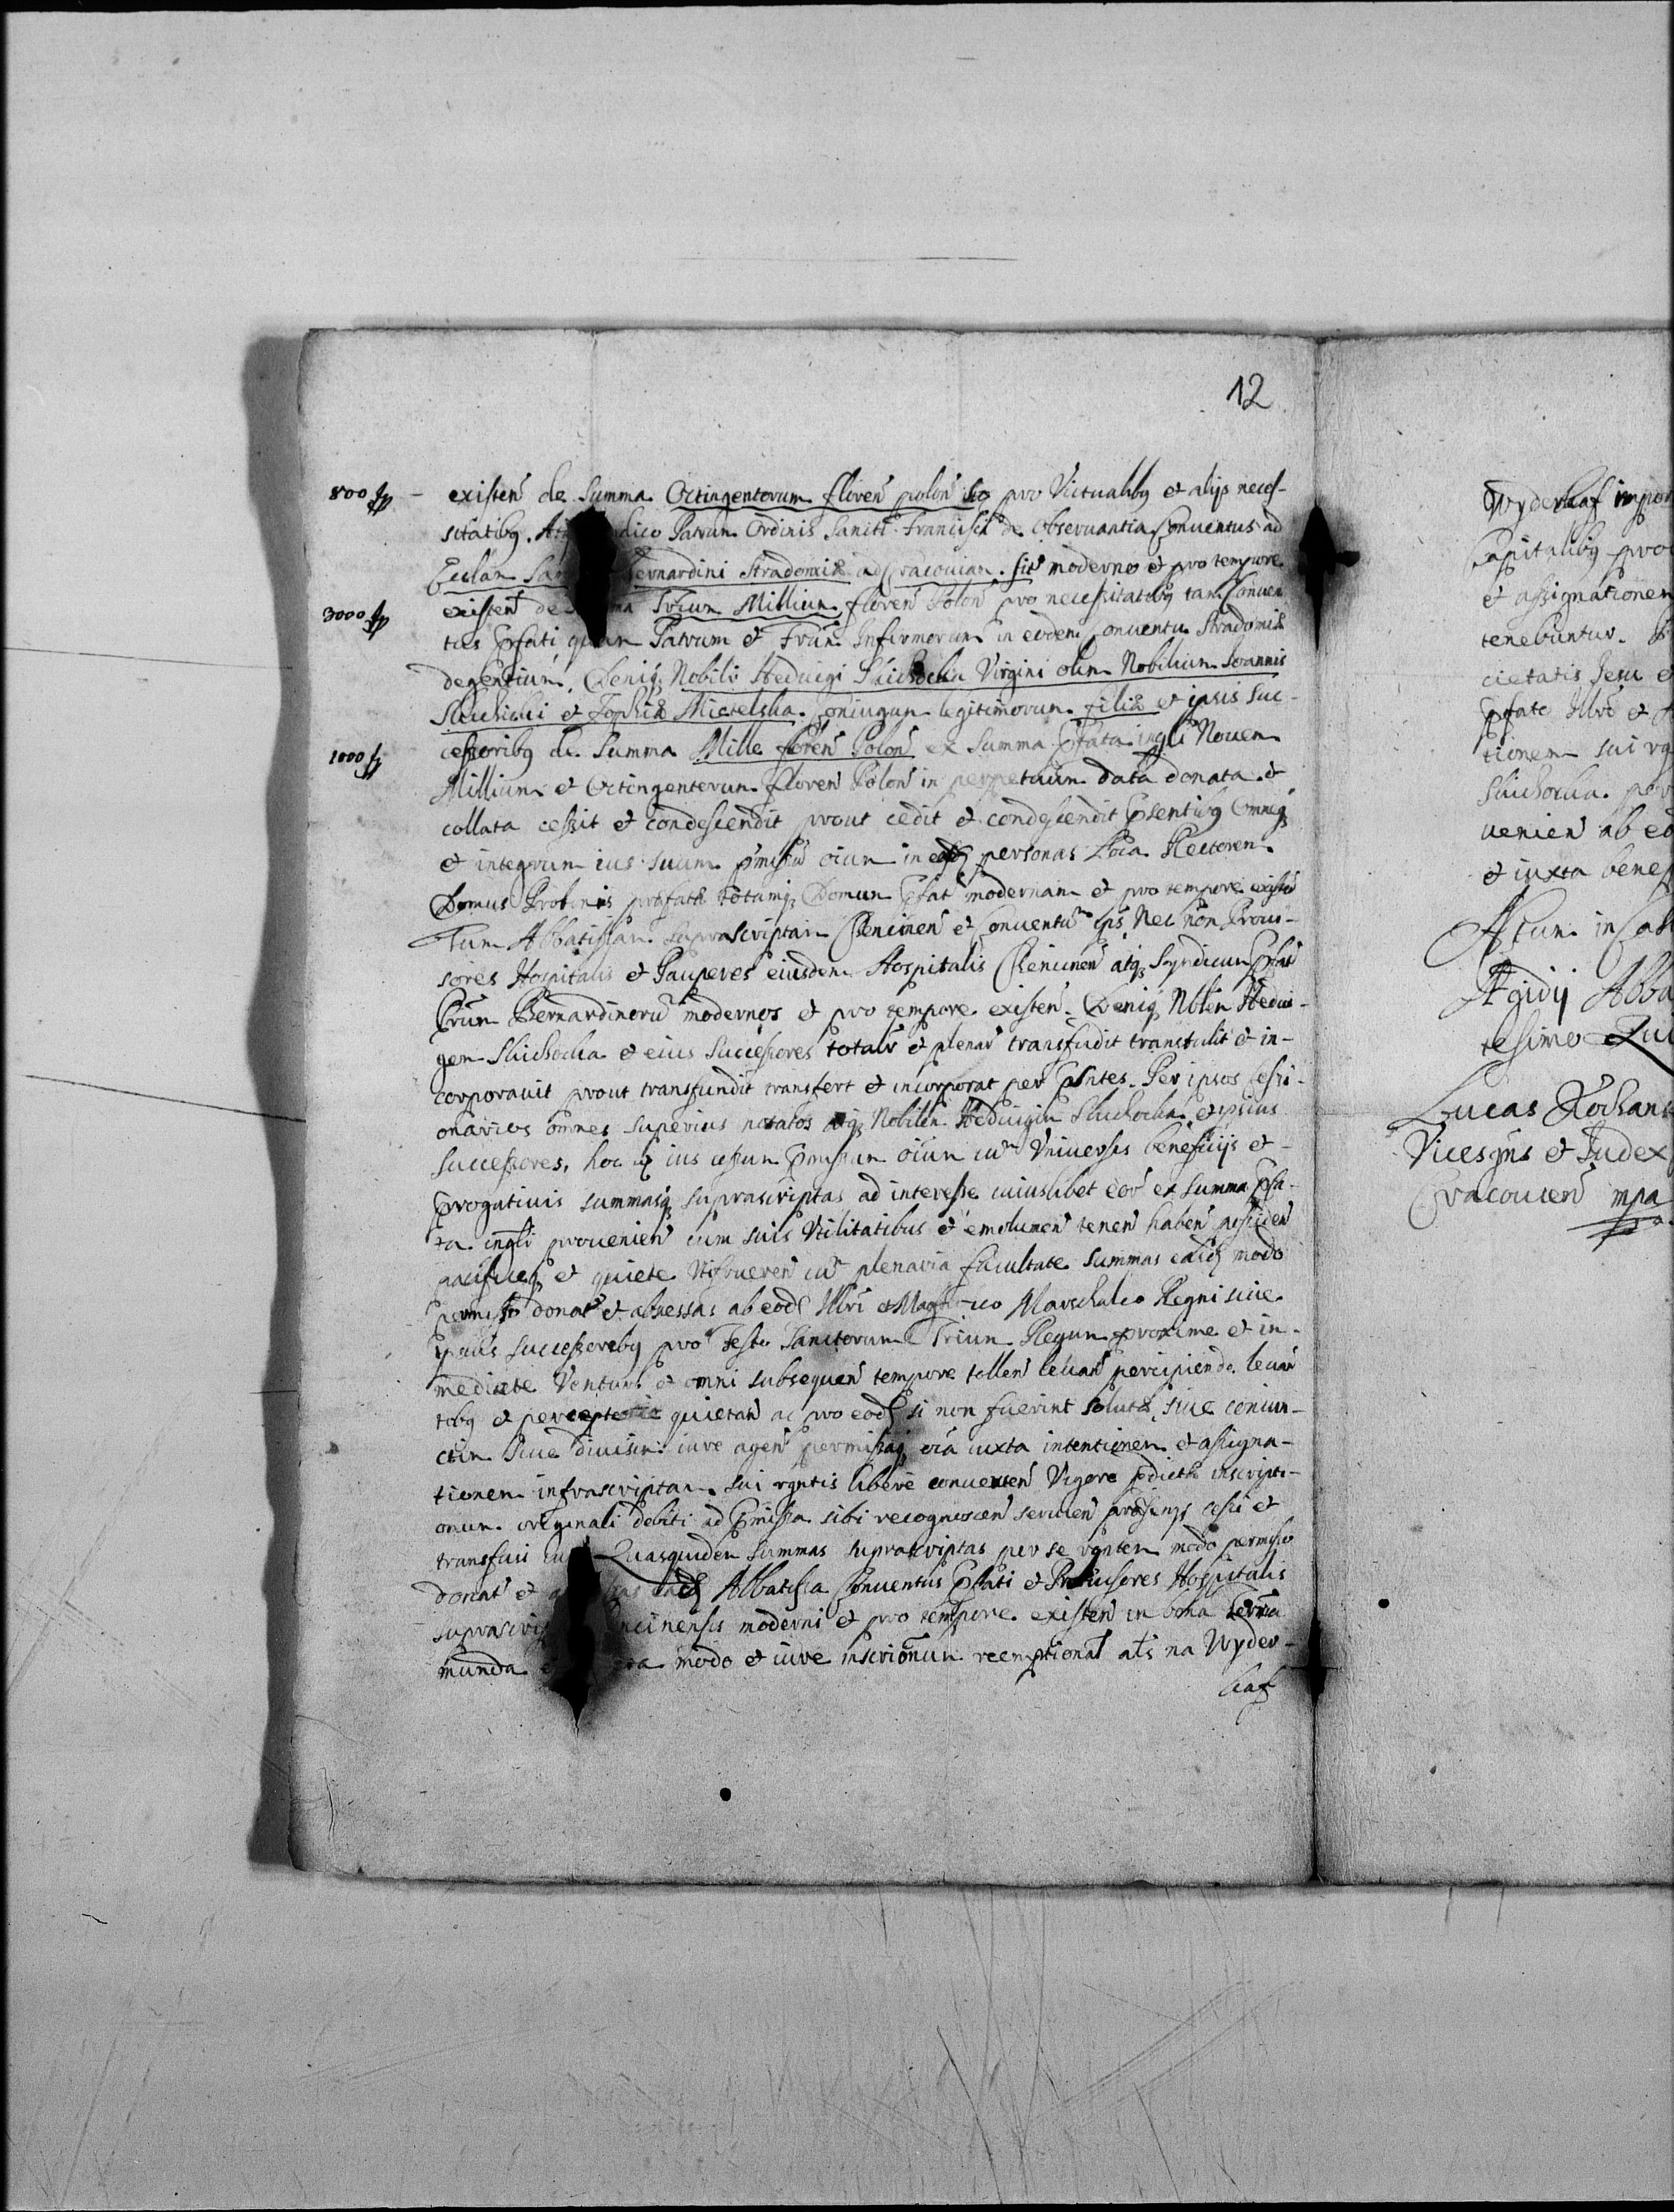 12
800 fp – existen̄ de Summa Octingentorum floren̄ polon̄ pro Victualibq et alijs neces-
sitatibq. dico Patrum Ordinis Sancti Francisci de Obseruantia Conuentus ad
Ecclān ernardini Stradomiæ ad Cracouian. sit̄ moderno et pro tempore
3000 fp existen̄ de ma Trium Millium floren̄ Polon̄ pro necessitatibq tam Conuen
tus Pfati quam Patrum et Frūm Infirmorum in eodem Conuentu Stradomiæ
degentium, Deniq Nobili Heduigi Sluchocka Virgini olim Nobilium Ioannis
Sluchocki et Sophiæ Mietelska Coniugum legitimorum filiæ et ipsis suc-
1000 fp cessoribq de Summa Mille floren̄ Polon̄ ex Summa Pfata ingli Nouem
Millium et Octingentorum floren̄ Polon̄ in perpetuum data donata et
collata cessit et condescendit prout cedit et condescendit Psentibq Omneq
et integrum ius suum pmissū oium in eosd personas Loca Rectorem
Domus Prob nis præfatæ totamq Domum Pfat̄ modernam et pro tempore existen̄
Tum Abbatissam suprascriptam Chencinen̄ et Conuentūm ips̄ Nec non Proui-
sores Hospitalis et Pauperes eiusdem Hospitalis Chencinen̄ atq Syndicum Pfat̄
Prūm Bernardinorū modernos et pro tempore existen̄. Deniq Noblēm Hedui-
gem Sluchocka et eius Successores totalr̄ et plenar̄ transfudit transtulit et in-
corporauit prout transfundit transfert et incorporat per Psntes. Per ipsos Cessi-
onarios omnes superius notatos atq Nobilem Heduigim Sluchocka et ipsius
Successores, hoc ius cessum Pmissum oium cum Vniuersis beneficijs et
Prrogatiuis summasq suprascriptas ad interesse cuiuslibet eor̄ ex summa Pfa-
ta ingli prouenien̄ cum suis Vtilitatibus et emolumen̄ tenen̄ haben̄ possiden̄
pacificeq et quiete Vtifrueren̄ cum plenaria facultate Summas easd modo
permisso donat̄ et a essas ab eod Illri et Magnifico Marschalco Regni siue
ipsius Successoribq pro Festo Sanctorum Trium Regum proxime et im-
mediate Ventur. et omni subsequen̄ tempore tollen̄ leuan̄ percipiendo leua
tobq et percept quietan̄ ac pro eod si non fuerint solutæ, siue coniun-
ctim siue diuisim iure agen̄ permissaq oia iuxta intentionem et assigna-
tionem infrascriptam sui rgntis libere conuerten̄ Vigore pdictæ inscripti-
onum originali debiti ad Pmissa sibi recognoscen̄ seruien̄ præsensq cessi et
transfusi iu Quasquidem Summas suprascriptas per se rgntem modo permisso
donat̄ et a as easd Abbatissa Conuentus Pfati et Prouisores Hospitalis
suprascrip ncinensis moderni et pro tempore existen̄ in bona terra
munda e ra modo et iure inscrionum reemptional als na Wyder-
kaf
Wyderkaf impo
Capitalibq pro
et assignationem
tenebuntur.
cietatis Jesu e
Pfato Illri et
tionem sui rg
Sluchocka. po
uenien̄ ab eo
et iuxta bene
Actum in Ca
Ægidij Abba
tesimo Qui
Lucas Kochan
Vicesgns et Judex
Cracouien̄ mpa